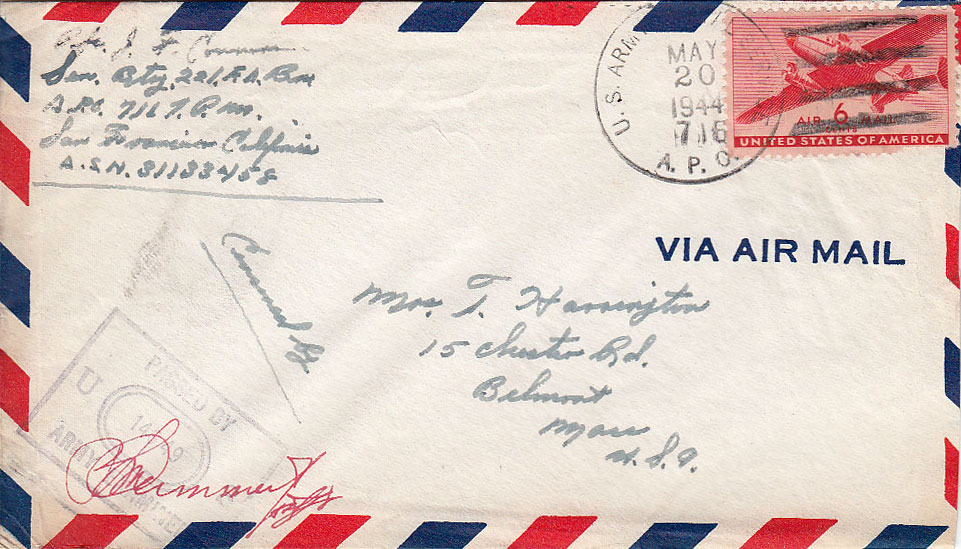 J. F.
Sen. Bty. 221 F.A. Bn
A.P.O. 716 % P.M.
San Francisco California
A.S.N. 31133458
U.S. ARMY
MAY
20
1944
716
A. P. O.
AIR 6 MAIL
CENTS
UNITED STATES OF AMERICA
VIA AIR MAIL
Censored by
Mrs. T. Harrington
15 Chester Rd.
Belmont
Mass
U.S.A.
PASSED BY
U
ARMY EXAMINER